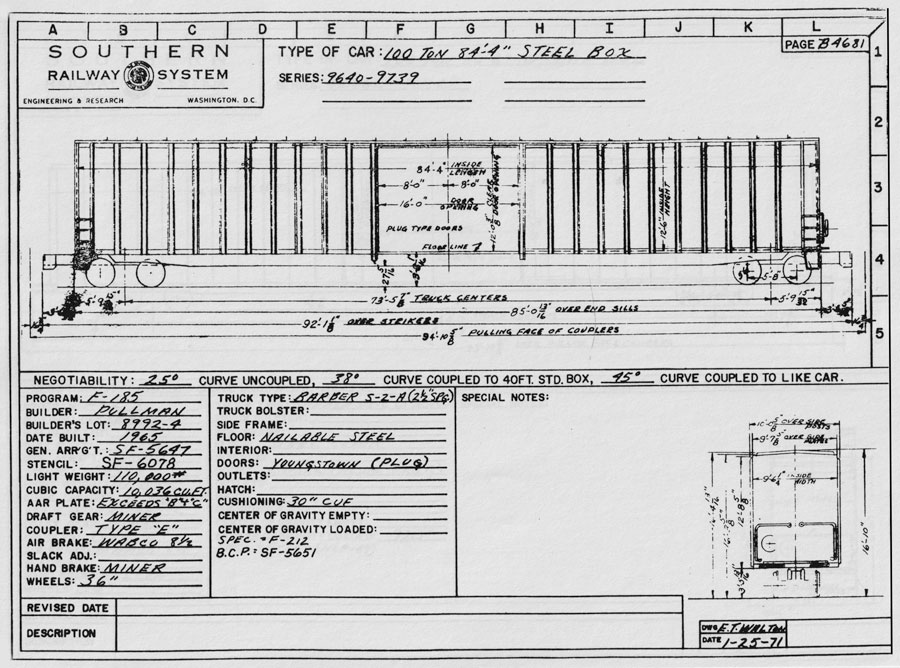 A B C D E F G H I J K L
SOUTHERN
RAILWAY SYSTEM
ENGINEERING & RESEARCH WASHINGTON, D.C.
TYPE OF CAR: 100 TON 84'-4" STEEL BOX
SERIES: 9640-9739
PAGE B4681
1
2
3
4
5
84'-4" INSIDE LENGTH
8'-0" 8'-0"
16'-0" DOOR OPENING
PLUG TYPE DOORS
FLOOR LINE
CLEAR DOOR OPENING
12'-6" INSIDE HEIGHT
5'-8"
5'-9 73'-5 7/8" TRUCK CENTERS 5'-9 15/32
85'-0 13/16 OVER END SILLS
92'-1 1/8" OVER STRIKERS
94'-10 5/8" PULLING FACE OF COUPLERS
NEGOTIABILITY: 25° CURVE UNCOUPLED, 38° CURVE COUPLED TO 40FT. STD. BOX, 45° CURVE COUPLED TO LIKE CAR.
PROGRAM: F-185
BUILDER: PULLMAN
BUILDER'S LOT: 8992-4
DATE BUILT: 1965
GEN. ARR'G'T.: SF-5647
STENCIL: SF-6078
LIGHT WEIGHT: 110,000#
CUBIC CAPACITY: 10,036 CU.FT.
AAR PLATE: EXCEEDS "B"&"C"
DRAFT GEAR: MINER
COUPLER: TYPE "E"
AIR BRAKE: WABCO 8½
SLACK ADJ.:
HAND BRAKE: MINER
WHEELS: 36"
TRUCK TYPE: BARBER S-2-A (2½" SPG)
TRUCK BOLSTER:
SIDE FRAME:
FLOOR: NAILABLE STEEL
INTERIOR:
DOORS: YOUNGSTOWN (PLUG)
OUTLETS:
HATCH:
CUSHIONING: 30" CUF
CENTER OF GRAVITY EMPTY:
CENTER OF GRAVITY LOADED:
SPEC. #F-212
B.C.P.: SF-5651
SPECIAL NOTES:
OVER SIDE POSTS
OVER SIDE PLATES
9'-6¼" INSIDE WIDTH
16'-10"
REVISED DATE
DESCRIPTION
DWG E.T. WALTON
DATE 1-25-71